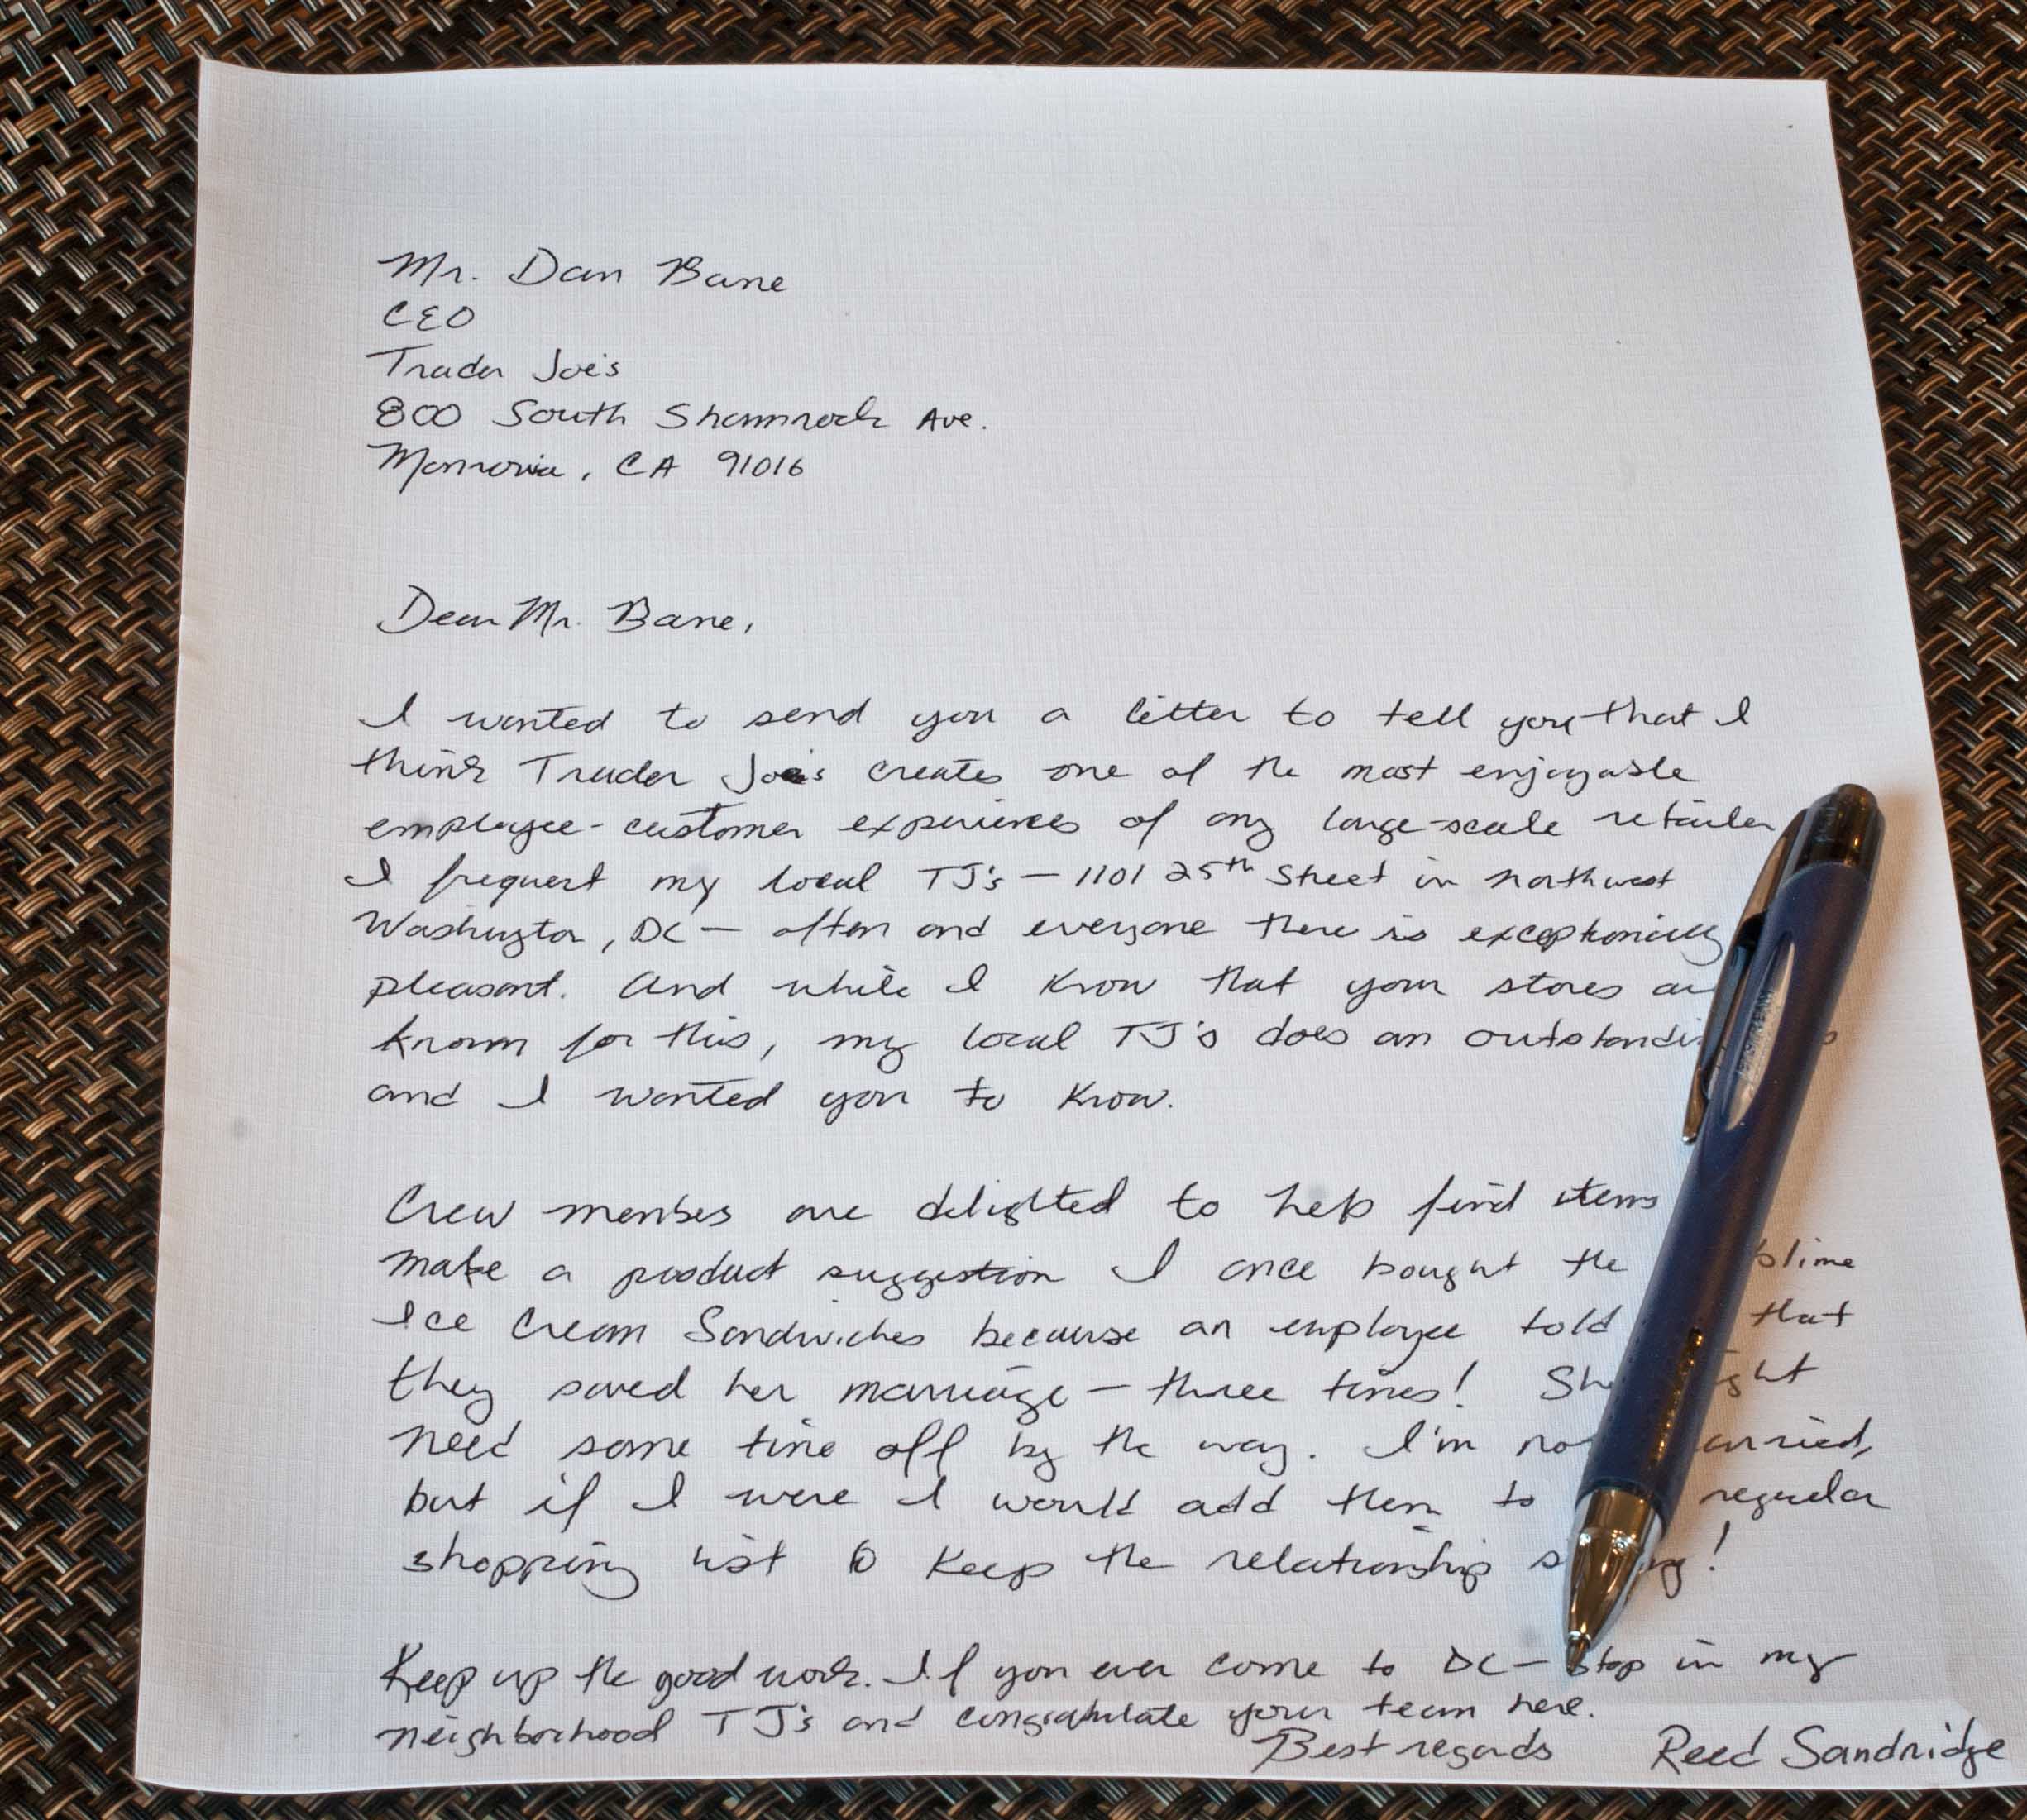 Mr. Dan Bane
CEO
Trader Joe's
800 South Shamrock Ave.
Monrovia, CA 91016
Dear Mr. Bane,
I wanted to send you a letter to tell you that I
think Trader Joe's creates one of the most enjoyable
employee-customer experiences of any large-scale retailer
I frequent my local TJ's — 1101 25th Street in northwest
Washington, DC — often and everyone there is exceptionally
pleasant. And while I know that your stores
known for this, my local TJ's does an
and I wanted you to know.
Crew members are delighted to help find items
make a product suggestion I once bought the
Ice Cream Sandwiches because an employee told that
they saved her marriage — three times!
need some time off by the way. I'm
but if I were I would add them to regular
shopping list to keep the relationship
Keep up the good work. If you ever come to DC — stop in my
neighborhood TJ's and congratulate your team here.
Best regards Reed Sandridge